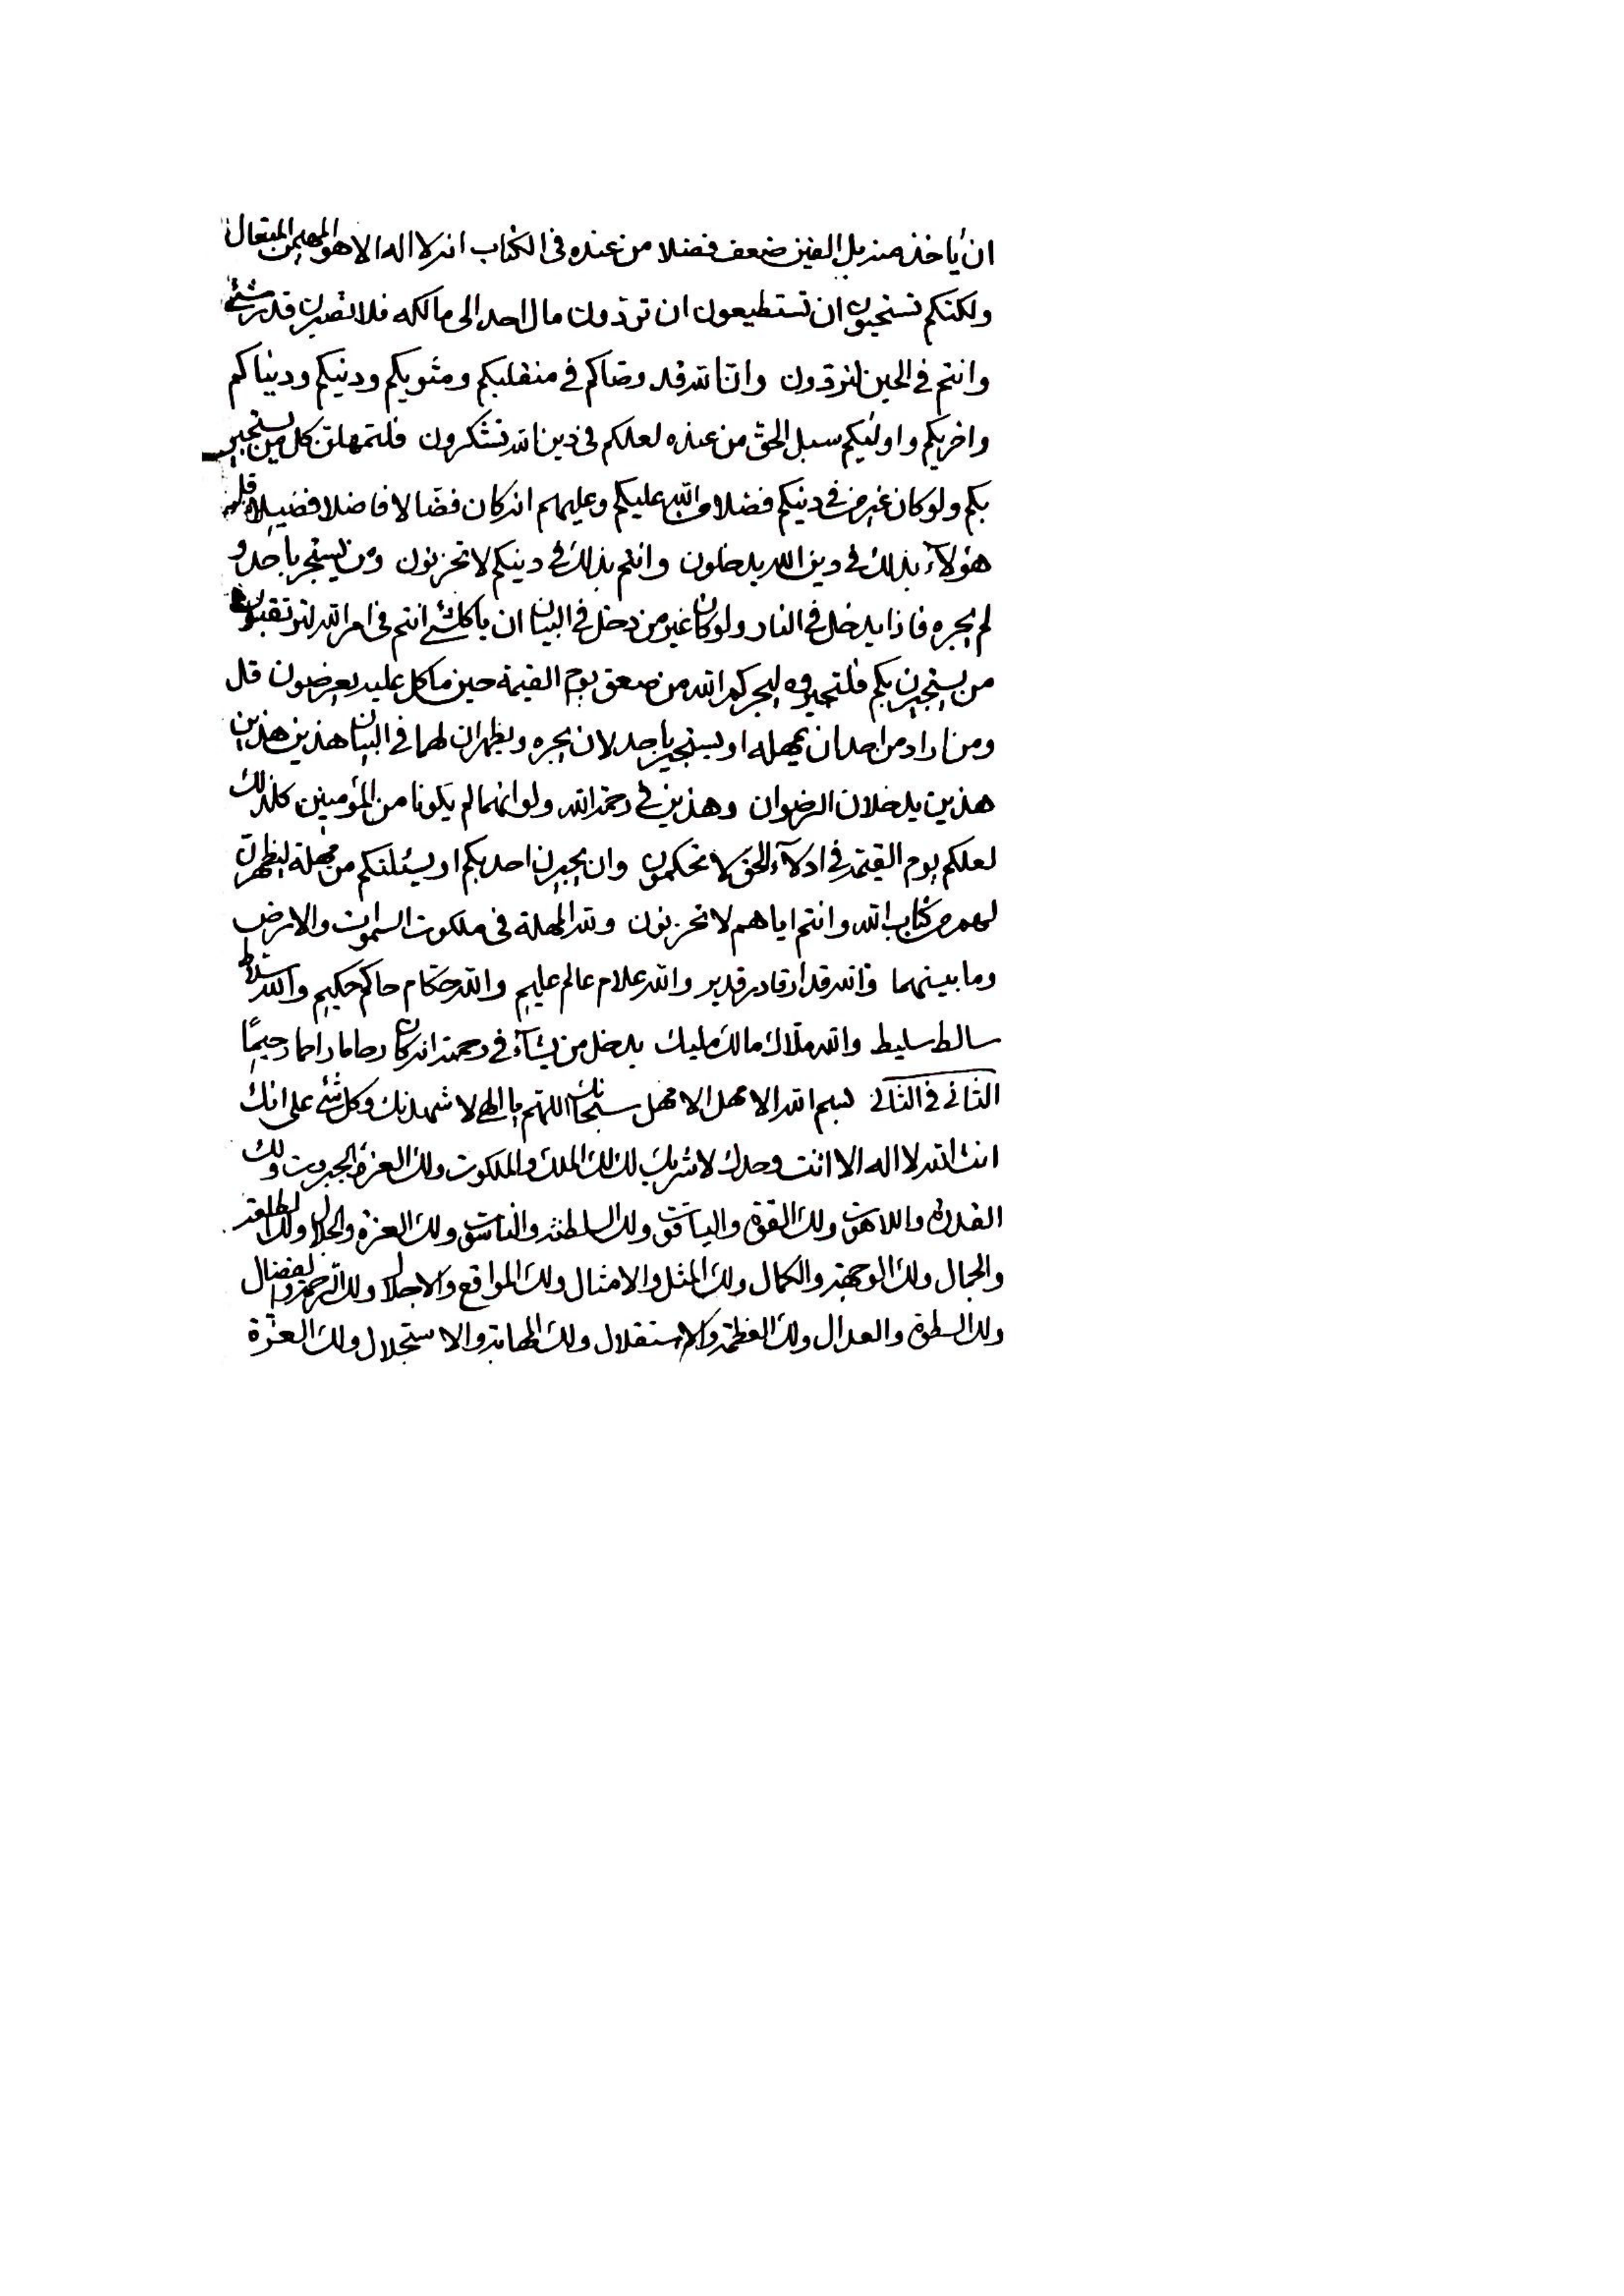 ان ياخذ منه بل الفين ضعف فضلا من عنده فى الكتاب انه لا اله الا هو المهيمن المتعال
ولكنكم تستحيون ان تستطيعون ان تردون مال احد الى مالكه فلا تصبرن قدر شئ
وانتم فى الحين لتردون وانا لله قد وصاكم فى منقلبكم ومثويكم ودنيكم ودنياكم
واخريكم واوليكم سبل الحق من عنده لعلكم فى دين الله تشكرون فلتمهلن كل من يستجير
بكم ولو كان غير من فى دينكم فضلا من الله عليكم وعليهم انه كان فضالا فاضلا فضيلا
هؤلاء بذلك فى دين الله يدخلون وانتم بذلك فى دينكم لا تحزنون ومن يستجير باحد و
لم يجره فاذا يدخل فى النار ولو كان غير من دخل فى البيان ان يا كلشئ انتم فى امر الله لترتقبون
من يستجيرن بكم فلتجيروه ليجركم الله من صعق يوم القيمة حين ما كل عليه يعرضون قل
ومن اراد من احد ان يمهله او يستجير باحد لان يجره ويظهران لهما فى البيان هذين هذين
هذين يدخلان الرضوان وهذين فى رحمة الله ولو انهما لم يكونا من المؤمنين كذلك
لعلكم يوم القيمة فى ادلاء الحق لا تحكمون وان يجيرن احد بكم او يسئلنكم من مهلة ليظهرن
لهم من كتاب الله وانتم اياهم لا تحزنون ولله المهلة فى ملكوت السموات والارض
وما بينهما والله قدار قادر قدير والله علام عالم عليم والله حكام حاكم حكيم والله سلاط
سالط سليط والله ملاك مالك مليك يدخل من يشاء فى رحمته انه كان رحاما راحما رحيمًا
الثانى فى الثانى بسم الله الامهل الامهل سبحانك اللهم يا الهى لاشهدنك وكل شئ على انك
انت الله لا اله الا انت وحدك لا شريك لك لك الملك والملكوت ولك العزة والجبروت ولك
القدرة واللاهوت ولك القوة والياقوت ولك السلطنة والناسوت ولك العزة والجلال ولك الطلعة
والجمال ولك الوجهة والكمال ولك المثل والامثال ولك المواقع والاجلال ولك الرحمة والفضال
ولك السطوة والعدال ولك العظمة والاستقلال ولك المهابة والاستجلال ولك العزة